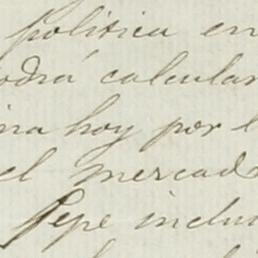 politica en
odrá calcular
ina hoy por l
el mercad
Pepe inclu